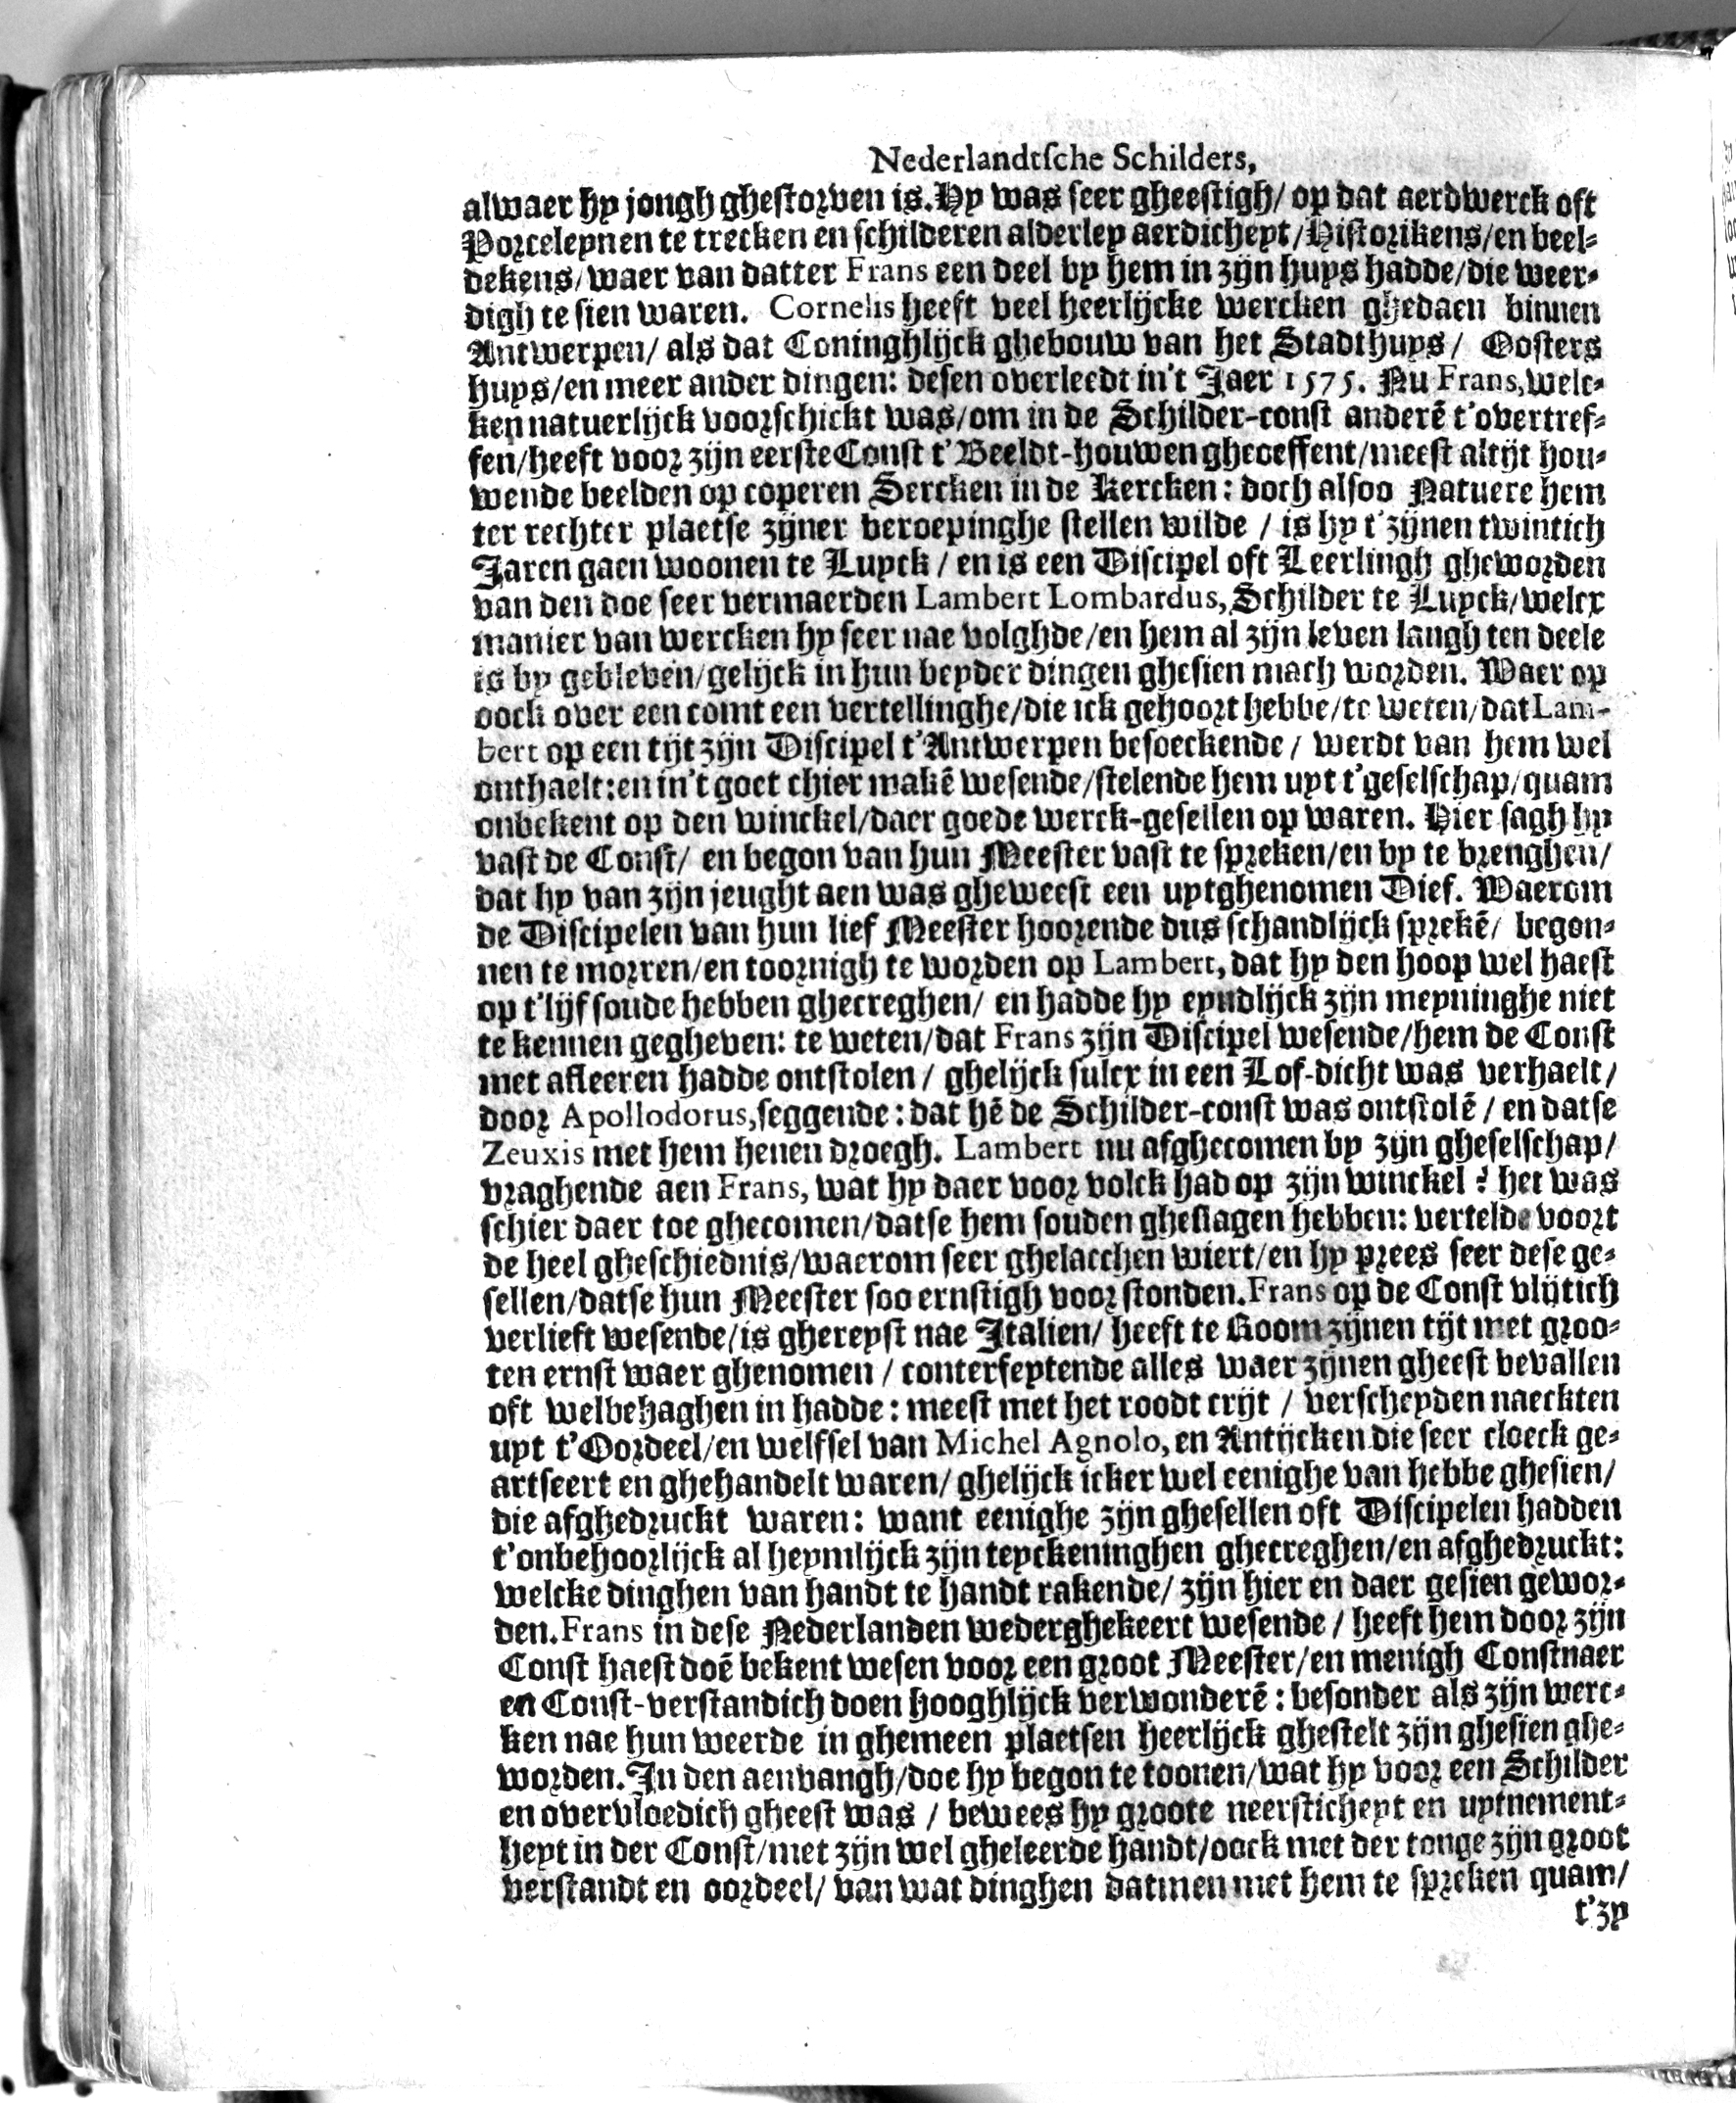 Nederlandtsche Schilders,
alwaer hy jongh ghestorven is. Hy was seer gheestigh/ op dat aerdwerck oft
Porceleynen te trecken en schilderen alderley aerdicheyt/Historikens/en beel-
dekens/waer van datter Frans een deel by hem in zijn huys hadde/die weer-
digh te sien waren. Cornelis heeft veel heerlijcke wercken ghedaen binnen
Antwerpen/ als dat Coninghlijck ghebouw van het Stadthuys/ Oosters
huys/en meer ander dingen: desen overleedt in't Jaer 1575. Nu Frans, welc-
ken natuerlijck voorschickt was/om in de Schilder-const anderē t'overtref-
fen/heeft voor zijn eerste Const t'Beeldt-houwen gheoeffent/meest altijt hou-
wende beelden op coperen Sercken in de Kercken: doch alsoo Natuere hem
ter rechter plaetse zijner beroepinghe stellen wilde / is hy t'zijnen twintich
Jaren gaen woonen te Luyck / en is een Discipel oft Leerlingh gheworden
van den doe seer vermaerden Lambert Lombardus, Schilder te Luyck/welcx
manier van wercken hy seer nae volghde/en hem al zijn leven langh ten deele
is by gebleven/gelijck in hun beyder dingen ghesien mach worden. Waer op
oock over een comt een vertellinghe/die ick gehoort hebbe/te weten/dat Lam-
bert op een tijt zijn Discipel t'Antwerpen besoeckende / werdt van hem wel
onthaelt: en in't goet chier makē wesende/stelende hem uyt t'geselschap/quam
onbekent op den winckel/daer goede werck-gesellen op waren. Hier sagh hy
vast de Const/ en begon van hun Meester vast te spreken/en by te brenghen/
dat hy van zijn jeught aen was gheweest een uytghenomen Dief. Waerom
de Discipelen van hun lief Meester hoorende dus schandlijck sprekē/ begon-
nen te morren/en toornigh te worden op Lambert, dat hy den hoop wel haest
op t'lijf soude hebben ghecreghen/ en hadde hy eyndlijck zijn meyninghe niet
te kennen gegheven: te weten/dat Frans zijn Discipel wesende/hem de Const
met afleeren hadde ontstolen / ghelijck sulcx in een Lof-dicht was verhaelt/
door Apollodorus, seggende: dat hē de Schilder-const was ontstolē / en datse
Zeuxis met hem henen droegh. Lambert nu afghecomen by zijn gheselschap/
vraghende aen Frans, wat hy daer voor volck had op zijn winckel? het was
schier daer toe ghecomen/datse hem souden gheslagen hebben: vertelde voort
de heel gheschiednis/waerom seer ghelacchen wiert/en hy prees seer dese ge-
sellen/datse hun Meester soo ernstigh voor stonden. Frans op de Const vlijtich
verlieft wesende/is ghereyst nae Italien/ heeft te Room zijnen tijt met groo-
ten ernst waer ghenomen / conterfeytende alles waer zijnen gheest bevallen
oft welbehaghen in hadde: meest met het roodt crijt / verscheyden naeckten
uyt t'Oordeel/en welfsel van Michel Agnolo, en Antijcken die seer cloeck ge-
artseert en ghehandelt waren/ ghelijck icker wel eenighe van hebbe ghesien/
die afghedruckt waren: want eenighe zijn ghesellen oft Discipelen hadden
t'onbehoorlijck al heymlijck zijn teyckeninghen ghecreghen/en afghedruckt:
welcke dinghen van handt te handt rakende/ zijn hier en daer gesien gewor-
den. Frans in dese Nederlanden wederghekeert wesende / heeft hem door zijn
Const haest doē bekent wesen voor een groot Meester/en menigh Constnaer
en Const-verstandich doen hooghlijck verwonderē: besonder als zijn werc-
ken nae hun weerde in ghemeen plaetsen heerlijck ghestelt zijn ghesien ghe-
worden. In den aenvangh/doe hy begon te toonen/wat hy voor een Schilder
en overvloedich gheest was / bewees hy groote neersticheyt en uytnement-
heyt in der Const/met zijn wel gheleerde handt/oock met der tonge zijn groot
verstandt en oordeel/ van wat dinghen datmen met hem te spreken quam/
t'zy